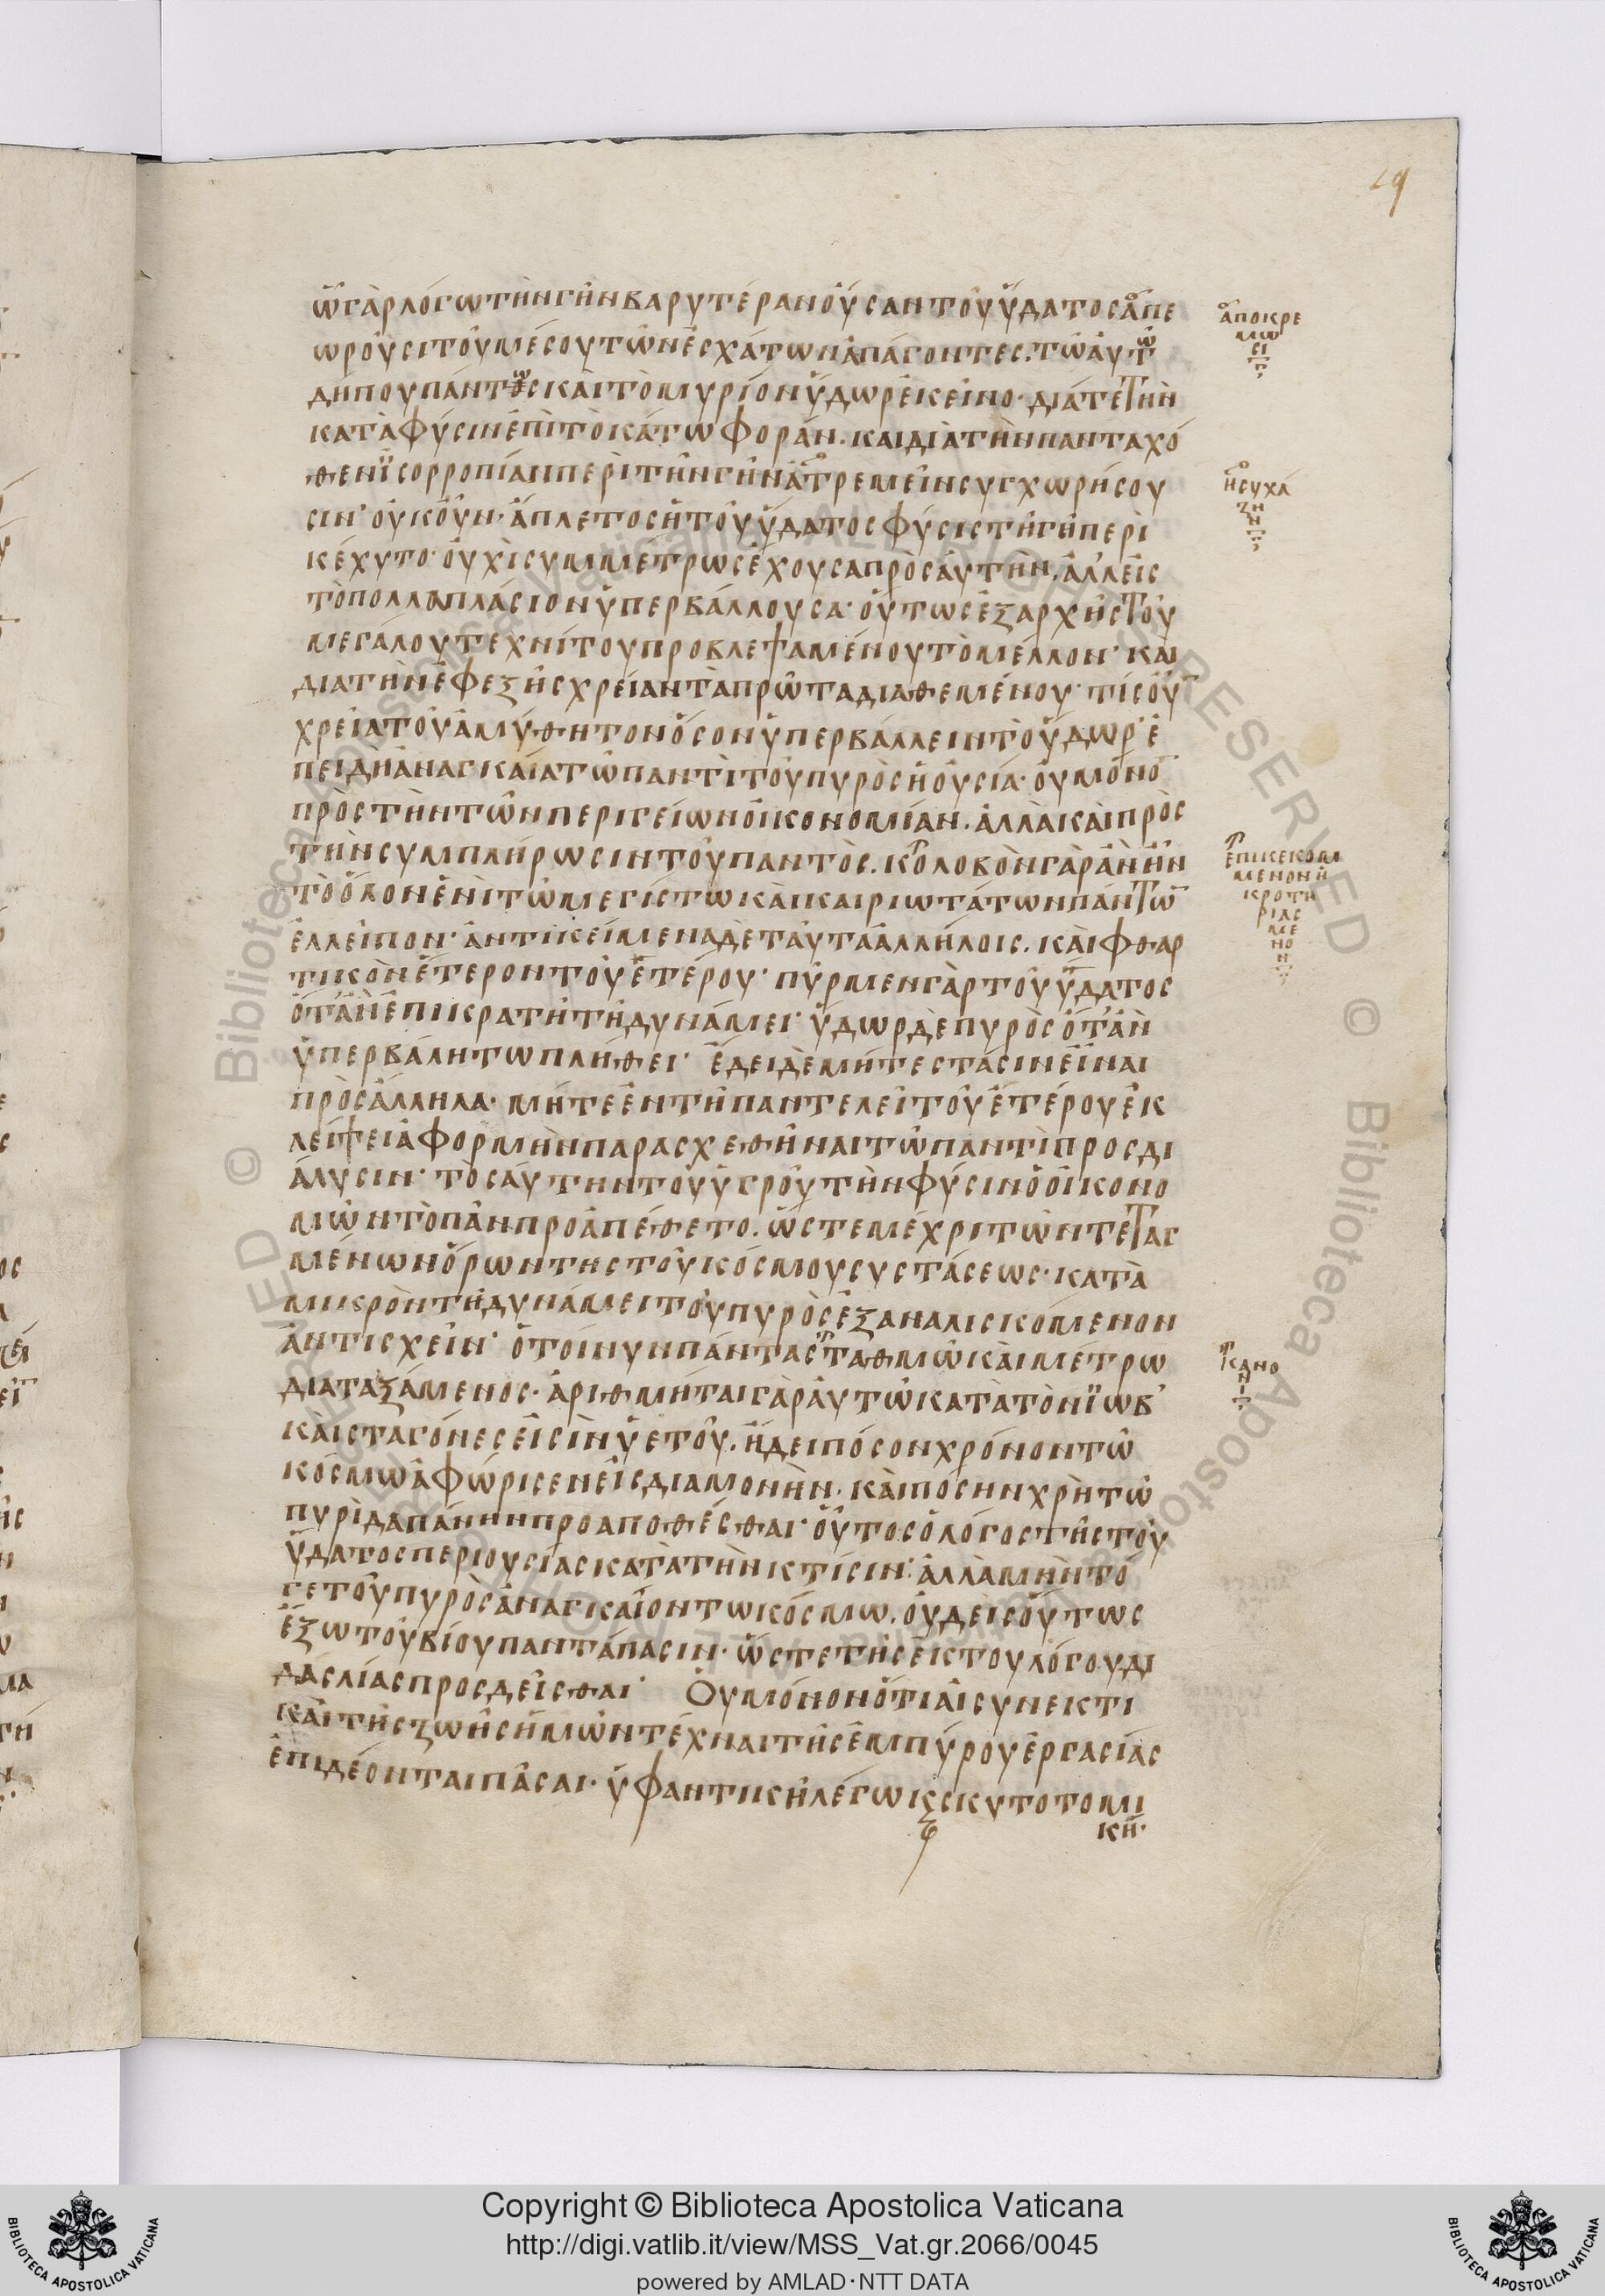 19
ὧ γὰρ λόγω τὴν γῆν βαρυτέραν οὖσαν τοῦ ὕδατος ἀπε
ωροῦσι τοῦ μέσου τῶν ἐσχάτων ἀπάγοντες. τῶ αὐτῶ
δήπου πάντως καὶ τὸ μυρίον ὕδωρ ἐκεῖνο· διά τε τὴν
κατὰ φύσιν ἐπὶ τὸ κάτω φοράν. καὶ διὰ τὴν πανταχό
θεν ἰσορροπίαν περὶ τὴν γῆν ἀτρεμεῖν συγχωρήσου
σιν· οὐκοῦν· ἄπλετος ἡ τοῦ ὕδατος φύσις τῆ γῆ περὶ
κέχυτο· οὐχὶ συμμέτρως ἔχουσα πρὸς αὐτὴν. ἀλλ' εἰς
τὸ πολλαπλάσιον ὑπερβάλλουσα· οὕτως ἐξ ἀρχῆς τοῦ
μεγάλου τεχνίτου προβλεψαμένου τὸ μέλλον· καὶ
διὰ τὴν ἐφεξῆς χρείαν τὰ πρῶτα διαθεμένου· τίς οὖν
χρεία τοῦ ἀμύθητον ὅσον ὑπερβάλλειν τὸ ὕδωρ· ἐ
πειδὴ ἀναγκαία τῶ παντὶ τοῦ πυρὸς ἡ οὐσία· οὐ μόνον
πρὸς τὴν τῶν περιγείων οἰκονομίαν. ἀλλὰ καὶ πρὸς
τὴν συμπλήρωσιν τοῦ παντὸς. κολοβὸν γὰρ ἂν ἦν
τὸ ὅλον ἐνὶ τῶ μεγίστω καὶ καιριωτάτων πάντων
ἐλλεῖπον· ἀντικείμενα δὲ ταῦτα ἀλλήλοις. καὶ φθαρ
τικὸν ἕτερον τοῦ ἑτέρου· πῦρ μεν γὰρ τοῦ ὕδατος
ὅτ' ἂν ἐπικρατῆ τῆ δυνάμει· ὕδωρ δὲ πυρὸς ὅτ' ἂν
ὑπερβάλη τω πλήθει· ἔδει δὲ μήτε στάσιν εἶναι
πρὸς ἄλληλα· μήτε ἐν τῆ παντελεῖ τοῦ ἑτέρου ἐκ
λείψει ἀφορμὴν παρασχεθῆναι τῶ παντὶ προς δι
άλυσιν· τὸσαύτην τοῦ ὑγροῦ τὴν φύσιν ὁ οἰκονο
μῶν τὸ πᾶν προαπέθετο. ὥστε μέχρι τῶν τεταγ
μένων ὅρων της τοῦ κόσμου συστάσεως· κατὰ
μικρὸν τῆ δυνάμει τοῦ πυρὸς ἐξαναλισκόμενον
ἀντισχεῖν· ὁ τοίνυν πάντα σταθμῶ καὶ μέτρω
διαταξάμενος· ἀριθμήται γὰρ αὐτῶ κατὰ τὸν ϊώβ'
καὶ σταγόνες εἰσὶν ὑετοῦ. ἤδει πόσον χρόνον τῶ
κόσμω ἀφώρισεν εἰς διαμονὴν. καὶ πόσην χρὴ τῶ
πυρὶ δαπάνην προαποθέσθαι· οὗτος ὁ λόγος τῆς τοῦ
ὕδατος περιουσίας κατὰ τὴν κτίσιν· ἀλλὰ μὴν τό
γε τοῦ πυρὸς ἀναγκαῖον τω κόσμω. οὐδεις οὕτως
ἔξω τοῦ βίου παντάπασιν· ὥστε τῆς ἐκ του λόγου δι
δασλίας προσδεῖσθαι· Οὐ μόνον ὅτι αἱ συνεκτι
καὶ τῆς ζωῆς ἡμῶν τέχναι τῆς ἐμπύρου ἐργασίας
ἐπιδέονται πᾶσαι· ὑφαντικὴ λέγω κ̀ σκυτοτομι
κὴ·
ἀποκρε
μω
σι
ἡσυχά
ζη
ν
ἐπικεκομ
μενον ἠ
κροτη
ριας
με
νο
ν
κανο
νι
Copyright © Biblioteca Apostolica Vaticana
http://digi.vatlib.it/view/MSS_Vat.gr.2066/0045
powered by AMLAD·NTT DATA